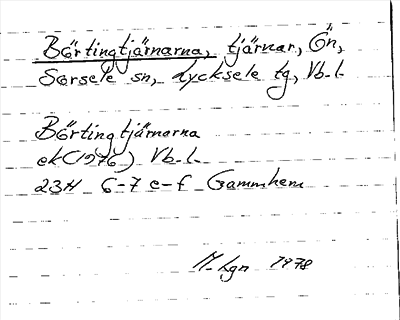 Börtingtjärnarna, tjärnar, Ön,
Sorsele sn, Lycksele tg, Vb. l.
Börtingtjärnarna
ek(1976) Vb. l.
23H 6-7 e-f Gammhem
1978